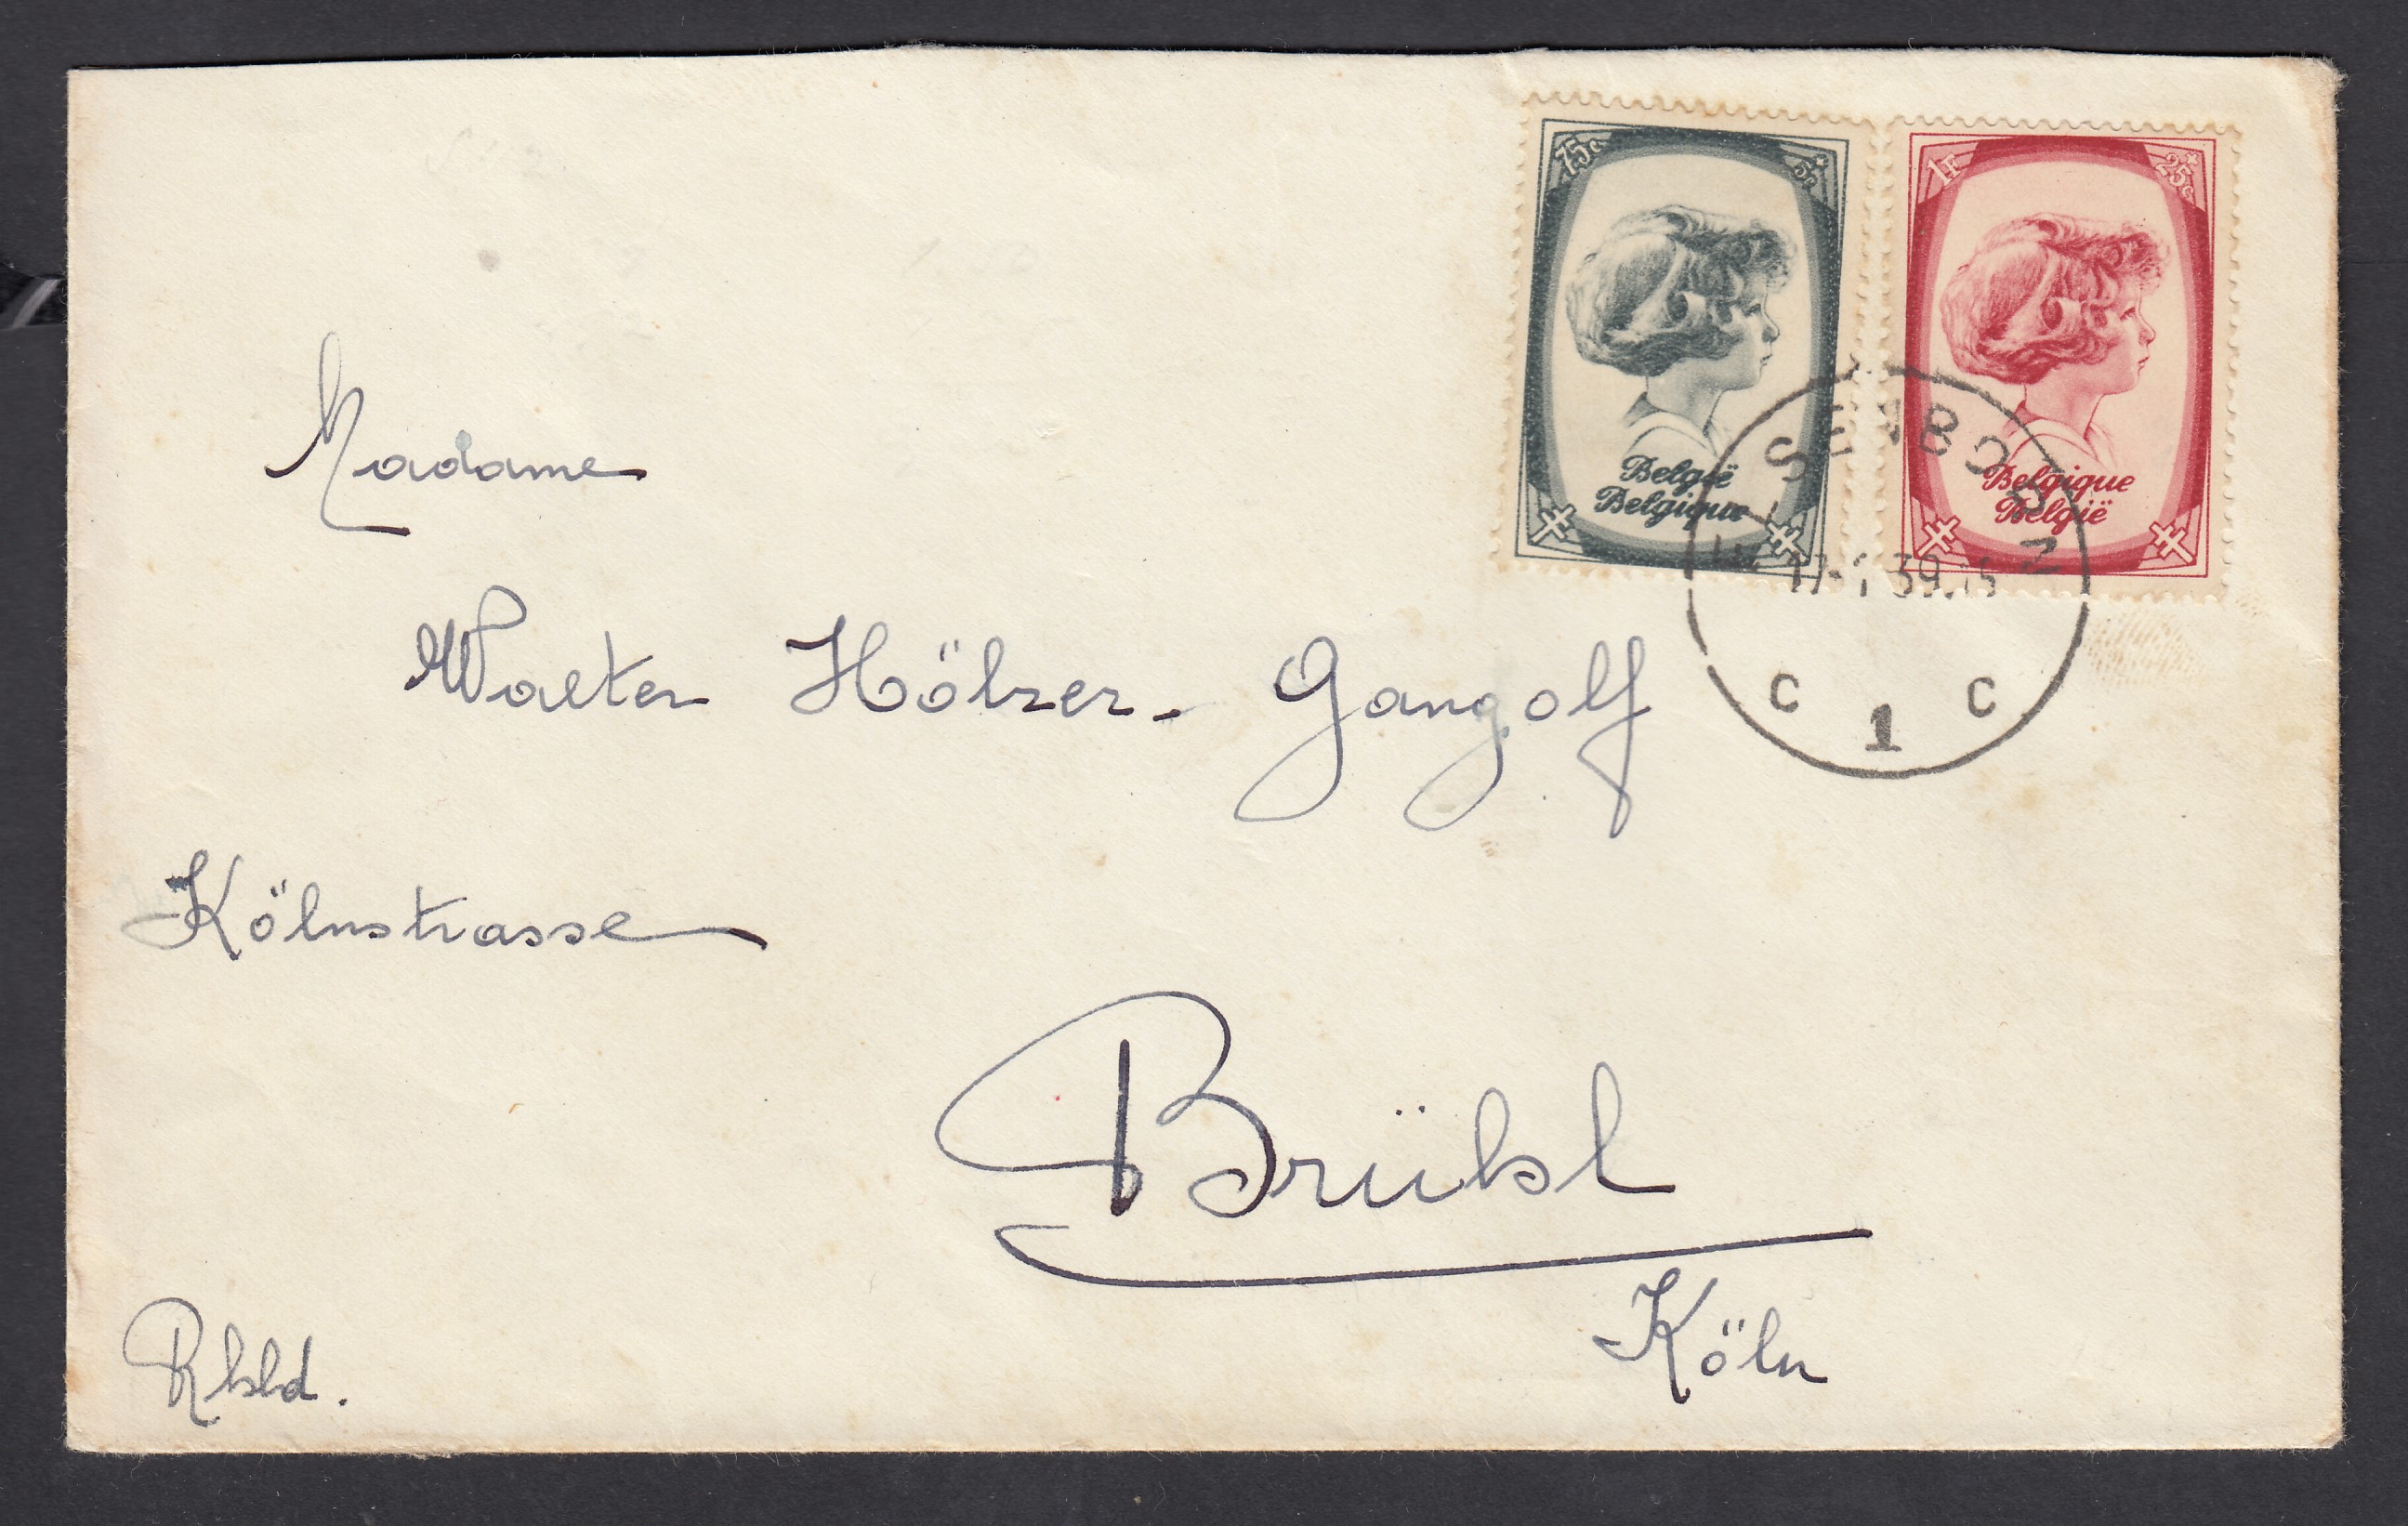 75c 5c
1F 25c
België
Belgique
Belgique
België
39
C 1 C
Madame
Walter Hölzer - Gangolf
Kölnstrasse
Brühl
Köln
Rhld.